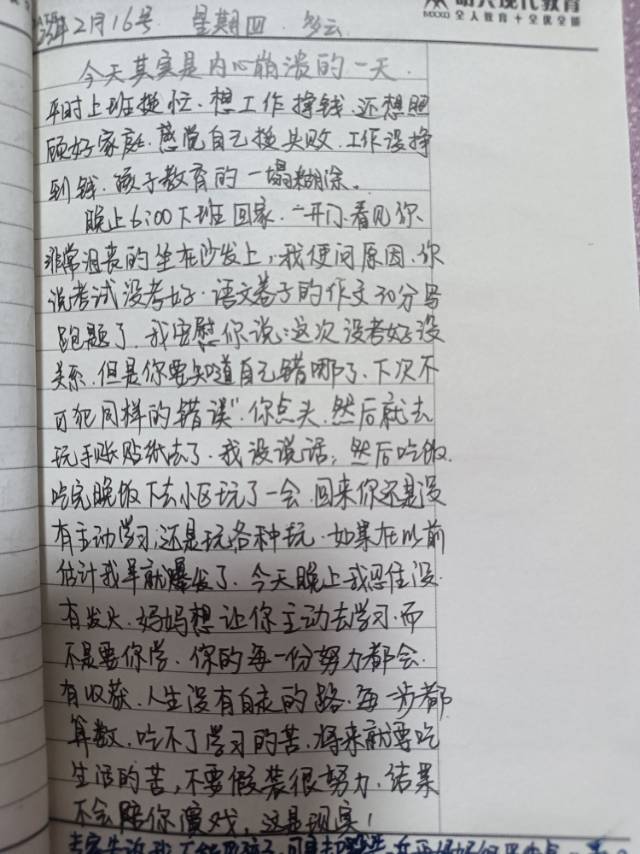 明天现代教育
全人教育十全优全能
年2月16号 星期四 多云
今天其实是内心崩溃的一天.
平时上班挺忙.想工作挣钱.还想照
顾好家庭.感觉自己挺失败.工作没挣
到钱.孩子教育的一塌糊涂。
晚上6:00下班回家.一开门.看见你
非常沮丧的坐在沙发上,我便问原因.你
说考试没考好.语文卷子的作文30分写
跑题了.我安慰你说:这次没考好没
关系.但是你要知道自己错哪了.下次不
可犯同样的错误".你点头.然后就去
玩手账贴纸去了.我没说话,然后吃饭.
吃完晚饭下去小区玩了一会.回来你还是没
有主动学习.还是玩各种玩.如果在以前
估计我早就爆发了.今天晚上我忍住没
有发火.妈妈想让你主动去学习.而
不是要你学.你的每一份努力都会.
有收获.人生没有白走的路.每一步都
算数.吃不了学习的苦.将来就要吃
生活的苦,不要假装很努力.结果
不会陪你演戏,这是现实!